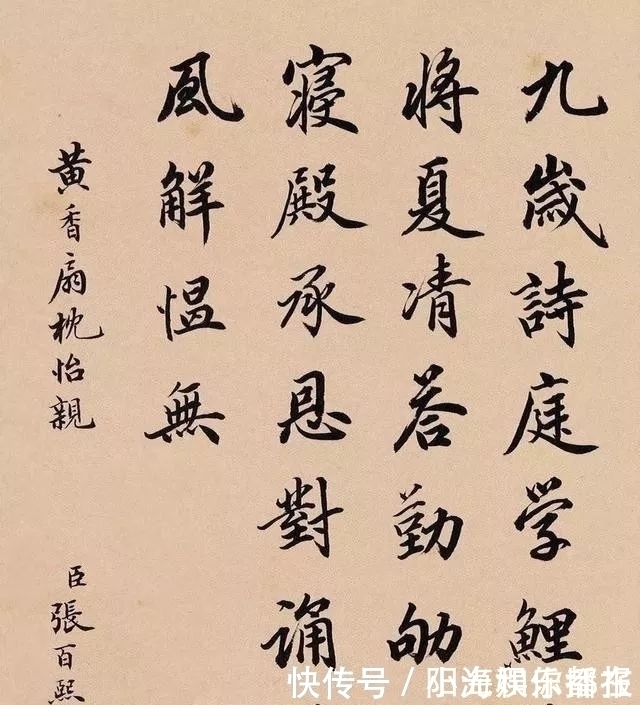 九歲詩庭学鯉
将夏凊荅勤劬
寢殿承恩對誦
風解愠無
黄香扇枕怡親
臣張百熙
快传号 /